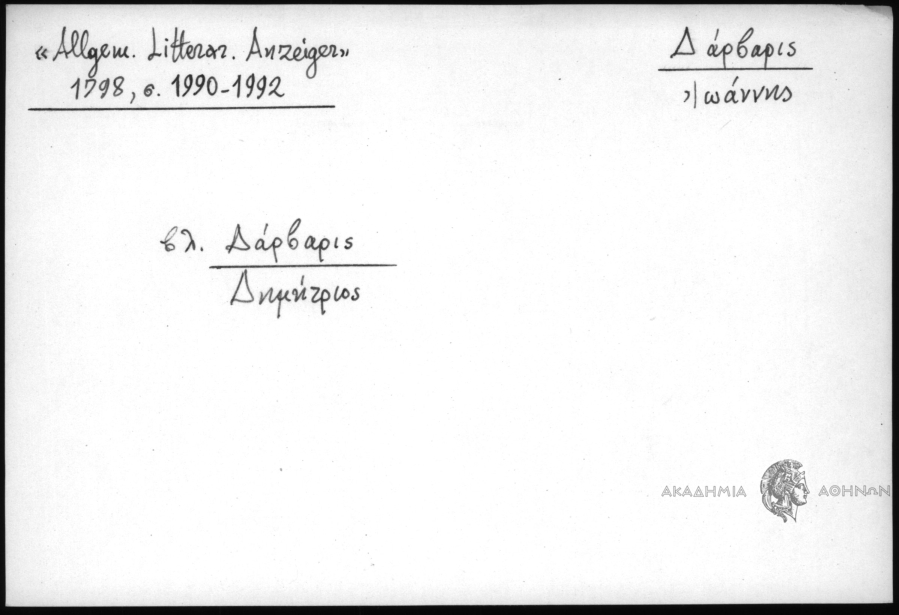 «Allgem. Litterar. Anzeiger»
1798, σ. 1990-1992
Δάρβαρις
Ἰωάννης
βλ. Δάρβαρις
Δημήτριος
ΑΚΑΔΗΜΙΑ ΑΘΗΝΩΝ